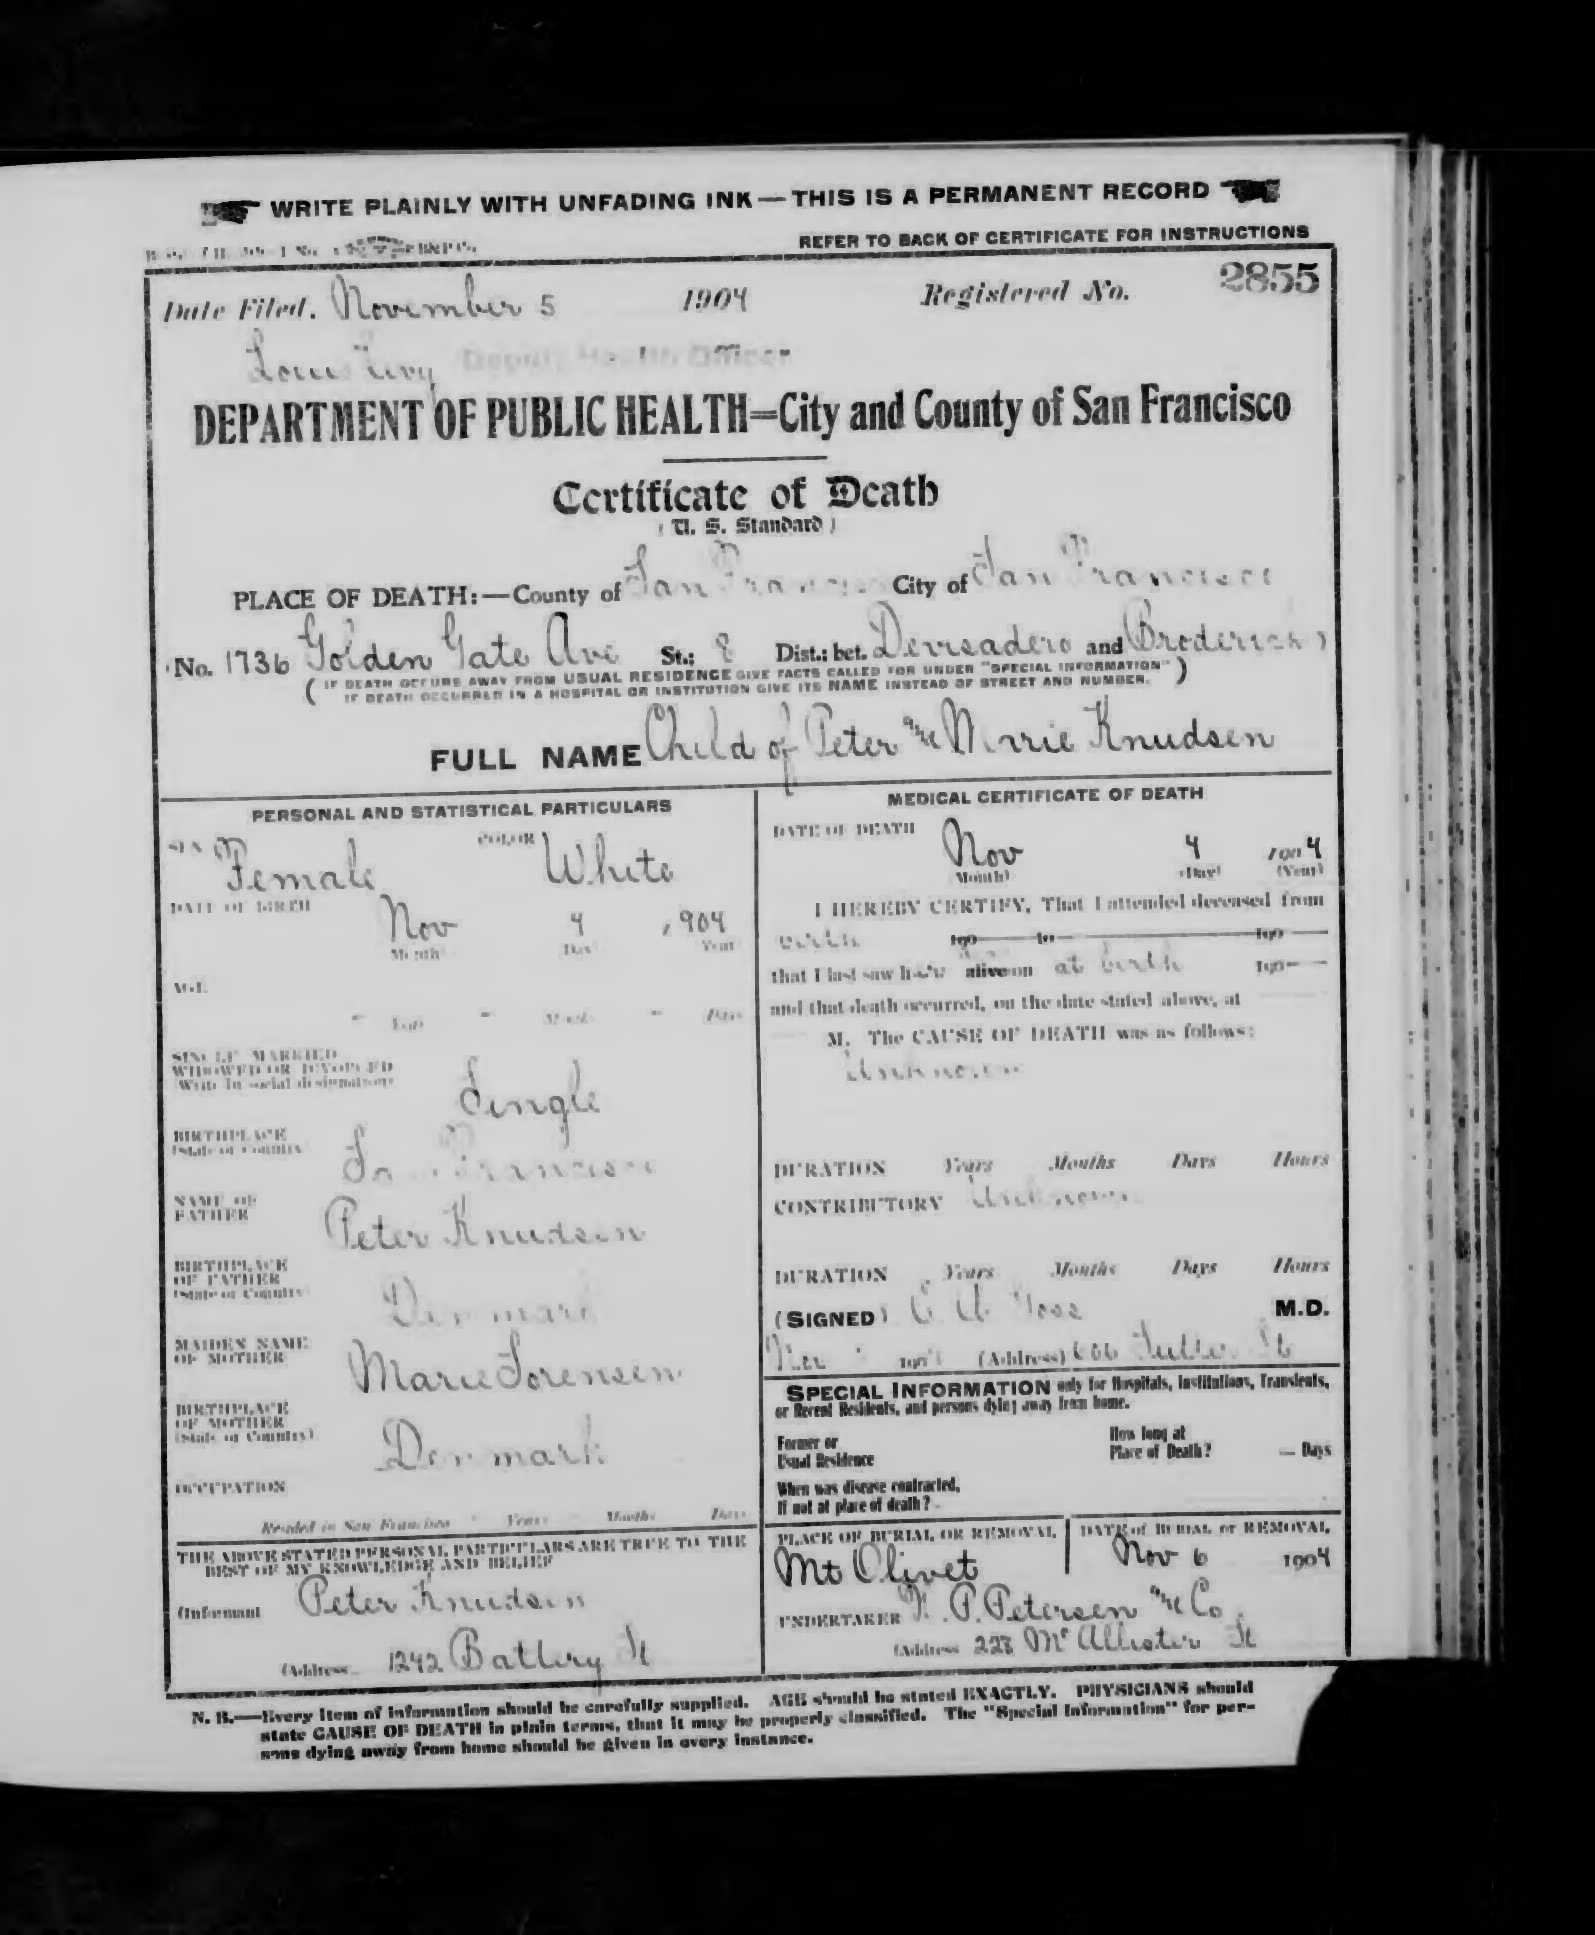 WRITE PLAINLY WITH UNFADING INK — THIS IS A PERMANENT RECORD
REFER TO BACK OF CERTIFICATE FOR INSTRUCTIONS
Date Filed. November 5 1904 Registered No. 2855
Louis Levy Deputy Health Officer
DEPARTMENT OF PUBLIC HEALTH=City and County of San Francisco
Certificate of Death
(U. S. Standard)
PLACE OF DEATH:—County of San Francisco City of San Francisco
No. 1736 Golden Gate Ave St.; 8 Dist.; bet. Devisadero and Broderick
( IF DEATH OCCURS AWAY FROM USUAL RESIDENCE GIVE FACTS CALLED FOR UNDER "SPECIAL INFORMATION" )
IF DEATH OCCURRED IN A HOSPITAL OR INSTITUTION GIVE ITS NAME INSTEAD OF STREET AND NUMBER.
FULL NAME Child of Peter and Marie Knudsen
PERSONAL AND STATISTICAL PARTICULARS
SEX Female COLOR White
DATE OF BIRTH Nov 4 1904
Month Day Year
AGE
Years Months Days
SINGLE MARRIED
WIDOWED OR DIVORCED
(Write in social designation)
Single
BIRTHPLACE
(State or Country)
San Francisco
NAME OF
FATHER
Peter Knudsen
BIRTHPLACE
OF FATHER
(State or Country)
Denmark
MAIDEN NAME
OF MOTHER
Marie Sorensen
BIRTHPLACE
OF MOTHER
(State or Country)
Denmark
OCCUPATION
Resided in San Francisco Years Months Days
THE ABOVE STATED PERSONAL PARTICULARS ARE TRUE TO THE
BEST OF MY KNOWLEDGE AND BELIEF
(Informant Peter Knudsen
(Address 1242 Battery St
MEDICAL CERTIFICATE OF DEATH
DATE OF DEATH
Nov 4 1904
(Month) (Day) (Year)
I HEREBY CERTIFY, That I attended deceased from
birth 190 to 190
that I last saw her alive on at birth 190
and that death occurred, on the date stated above, at
M. The CAUSE OF DEATH was as follows:
Unknown
DURATION Years Months Days Hours
CONTRIBUTORY Unknown
DURATION Years Months Days Hours
(SIGNED) M.D.
Nov 1904 (Address) 606 Sutter St
SPECIAL INFORMATION only for Hospitals, Institutions, Transients,
or Recent Residents, and persons dying away from home.
Former or
Usual Residence
How long at
Place of Death? Days
When was disease contracted,
If not at place of death?
PLACE OF BURIAL OR REMOVAL
Mt Olivet
DATE of BURIAL or REMOVAL
Nov 6 1904
UNDERTAKER P. Petersen and Co
(Address 228 McAllister St
N. B.—Every item of information should be carefully supplied. AGE should be stated EXACTLY. PHYSICIANS should
state CAUSE OF DEATH in plain terms, that it may be properly classified. The "Special Information" for per-
sons dying away from home should be given in every instance.